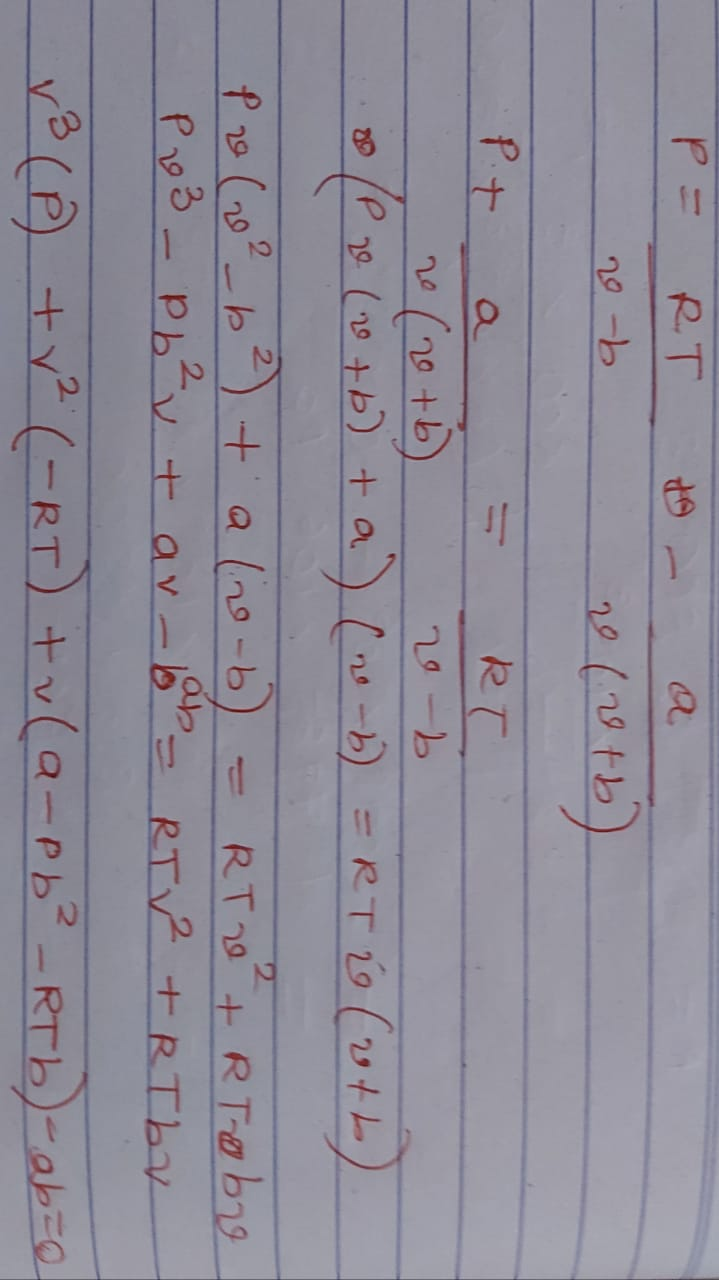 P = RT / v-b - a / v(v+b)
P + a / v(v+b) = RT / v-b
(Pv(v+b) + a)(v-b) = RTv(v+b)
Pv(v²-b²) + a(v-b) = RTv² + RTbv
Pv³ - Pb²v + av - ab = RTv² + RTbv
v³(P) + v²(-RT) + v(a - Pb² - RTb) - ab = 0